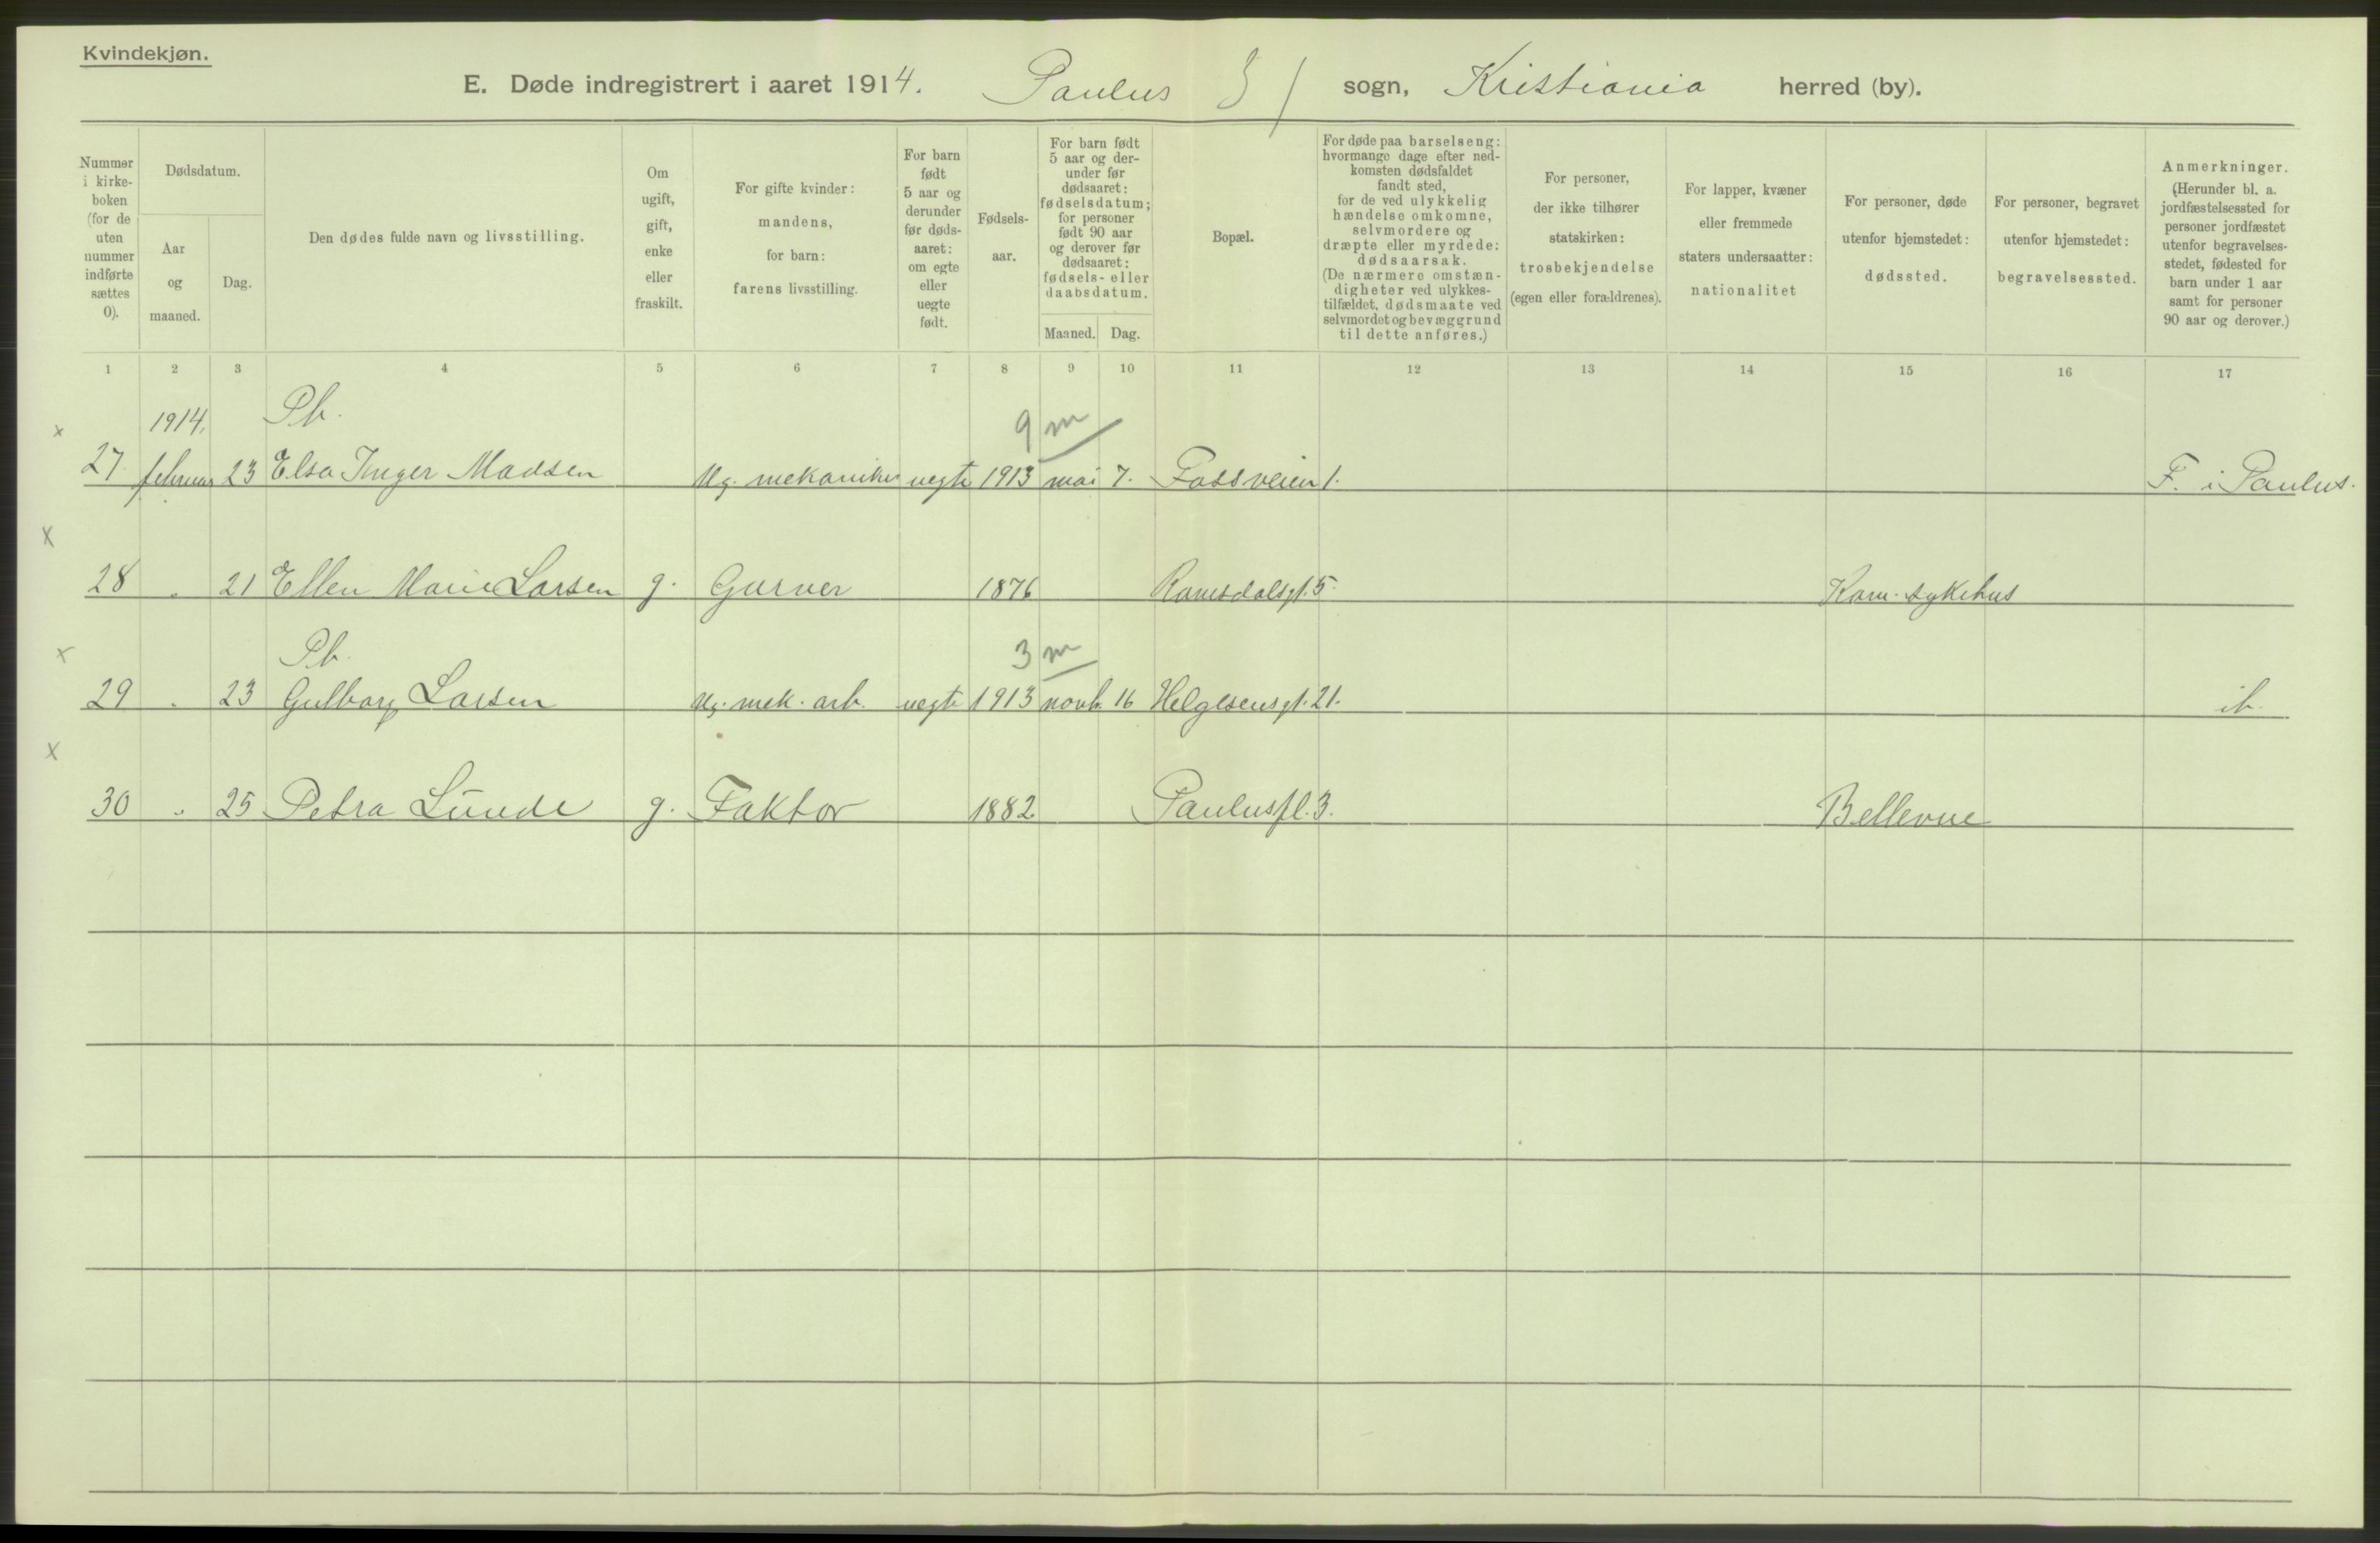 Kvindekjøn.
E. Døde indregistrert i aaret 1914. Paulus sogn, Kristiania herred (by).
Nummer i kirke-boken (for de uten nummer indførte sættes 0).
Dødsdatum.
Aar og maaned.
Dag.
Den dødes fulde navn og livsstilling.
Om ugift, gift, enke eller fraskilt.
For gifte kvinder: mandens, for barn: farens livsstilling.
For barn født 5 aar og derunder før døds-aaret: om egte eller uegte født.
Fødsels-aar.
For barn født 5 aar og der-under før dødsaaret: fødselsdatum; for personer født 90 aar og derover før dødsaaret: fødsels- eller daabsdatum.
Maaned. Dag.
Bopæl.
For døde paa barselseng: hvormange dage efter ned-komsten dødsfaldet fandt sted, for de ved ulykkelig hændelse omkomne, selvmordere og dræpte eller myrdede: dødsaarsak. (De nærmere omstæn-digheter ved ulykkes-tilfældet, dødsmaate ved selvmordet og bevæggrund til dette anføres.)
For personer, der ikke tilhører statskirken: trosbekjendelse (egen eller forældrenes).
For lapper, kvæner eller fremmede staters undersaatter: nationalitet
For personer, døde utenfor hjemstedet: dødssted.
For personer, begravet utenfor hjemstedet: begravelsessted.
Anmerkninger. (Herunder bl. a. jordfæstelsessted for personer jordfæstet utenfor begravelses-stedet, fødested for barn under 1 aar samt for personer 90 aar og derover.)
1 2 3 4 5 6 7 8 9 10 11 12 13 14 15 16 17
x 1914. Pb. 9 m
27 februar 23 Elsa Inger Madsen Ug. mekaniker uegte 1913 mai 7. Fossveien 1. F. i Paulus.
x
28 . 21 Ellen Marie Larsen g. Gurver 1876 Ramsdalsgt. 5. Kom. sykehus
x Pb. 3 m
29 . 23 Gulborg Larsen Ug. mek. arb. uegte 1913 novb. 16 Helgesensgt. 21. ib.
x
30 . 25 Petra Lunde g. Faktor 1882 Pauluspl. 3. Bellevue